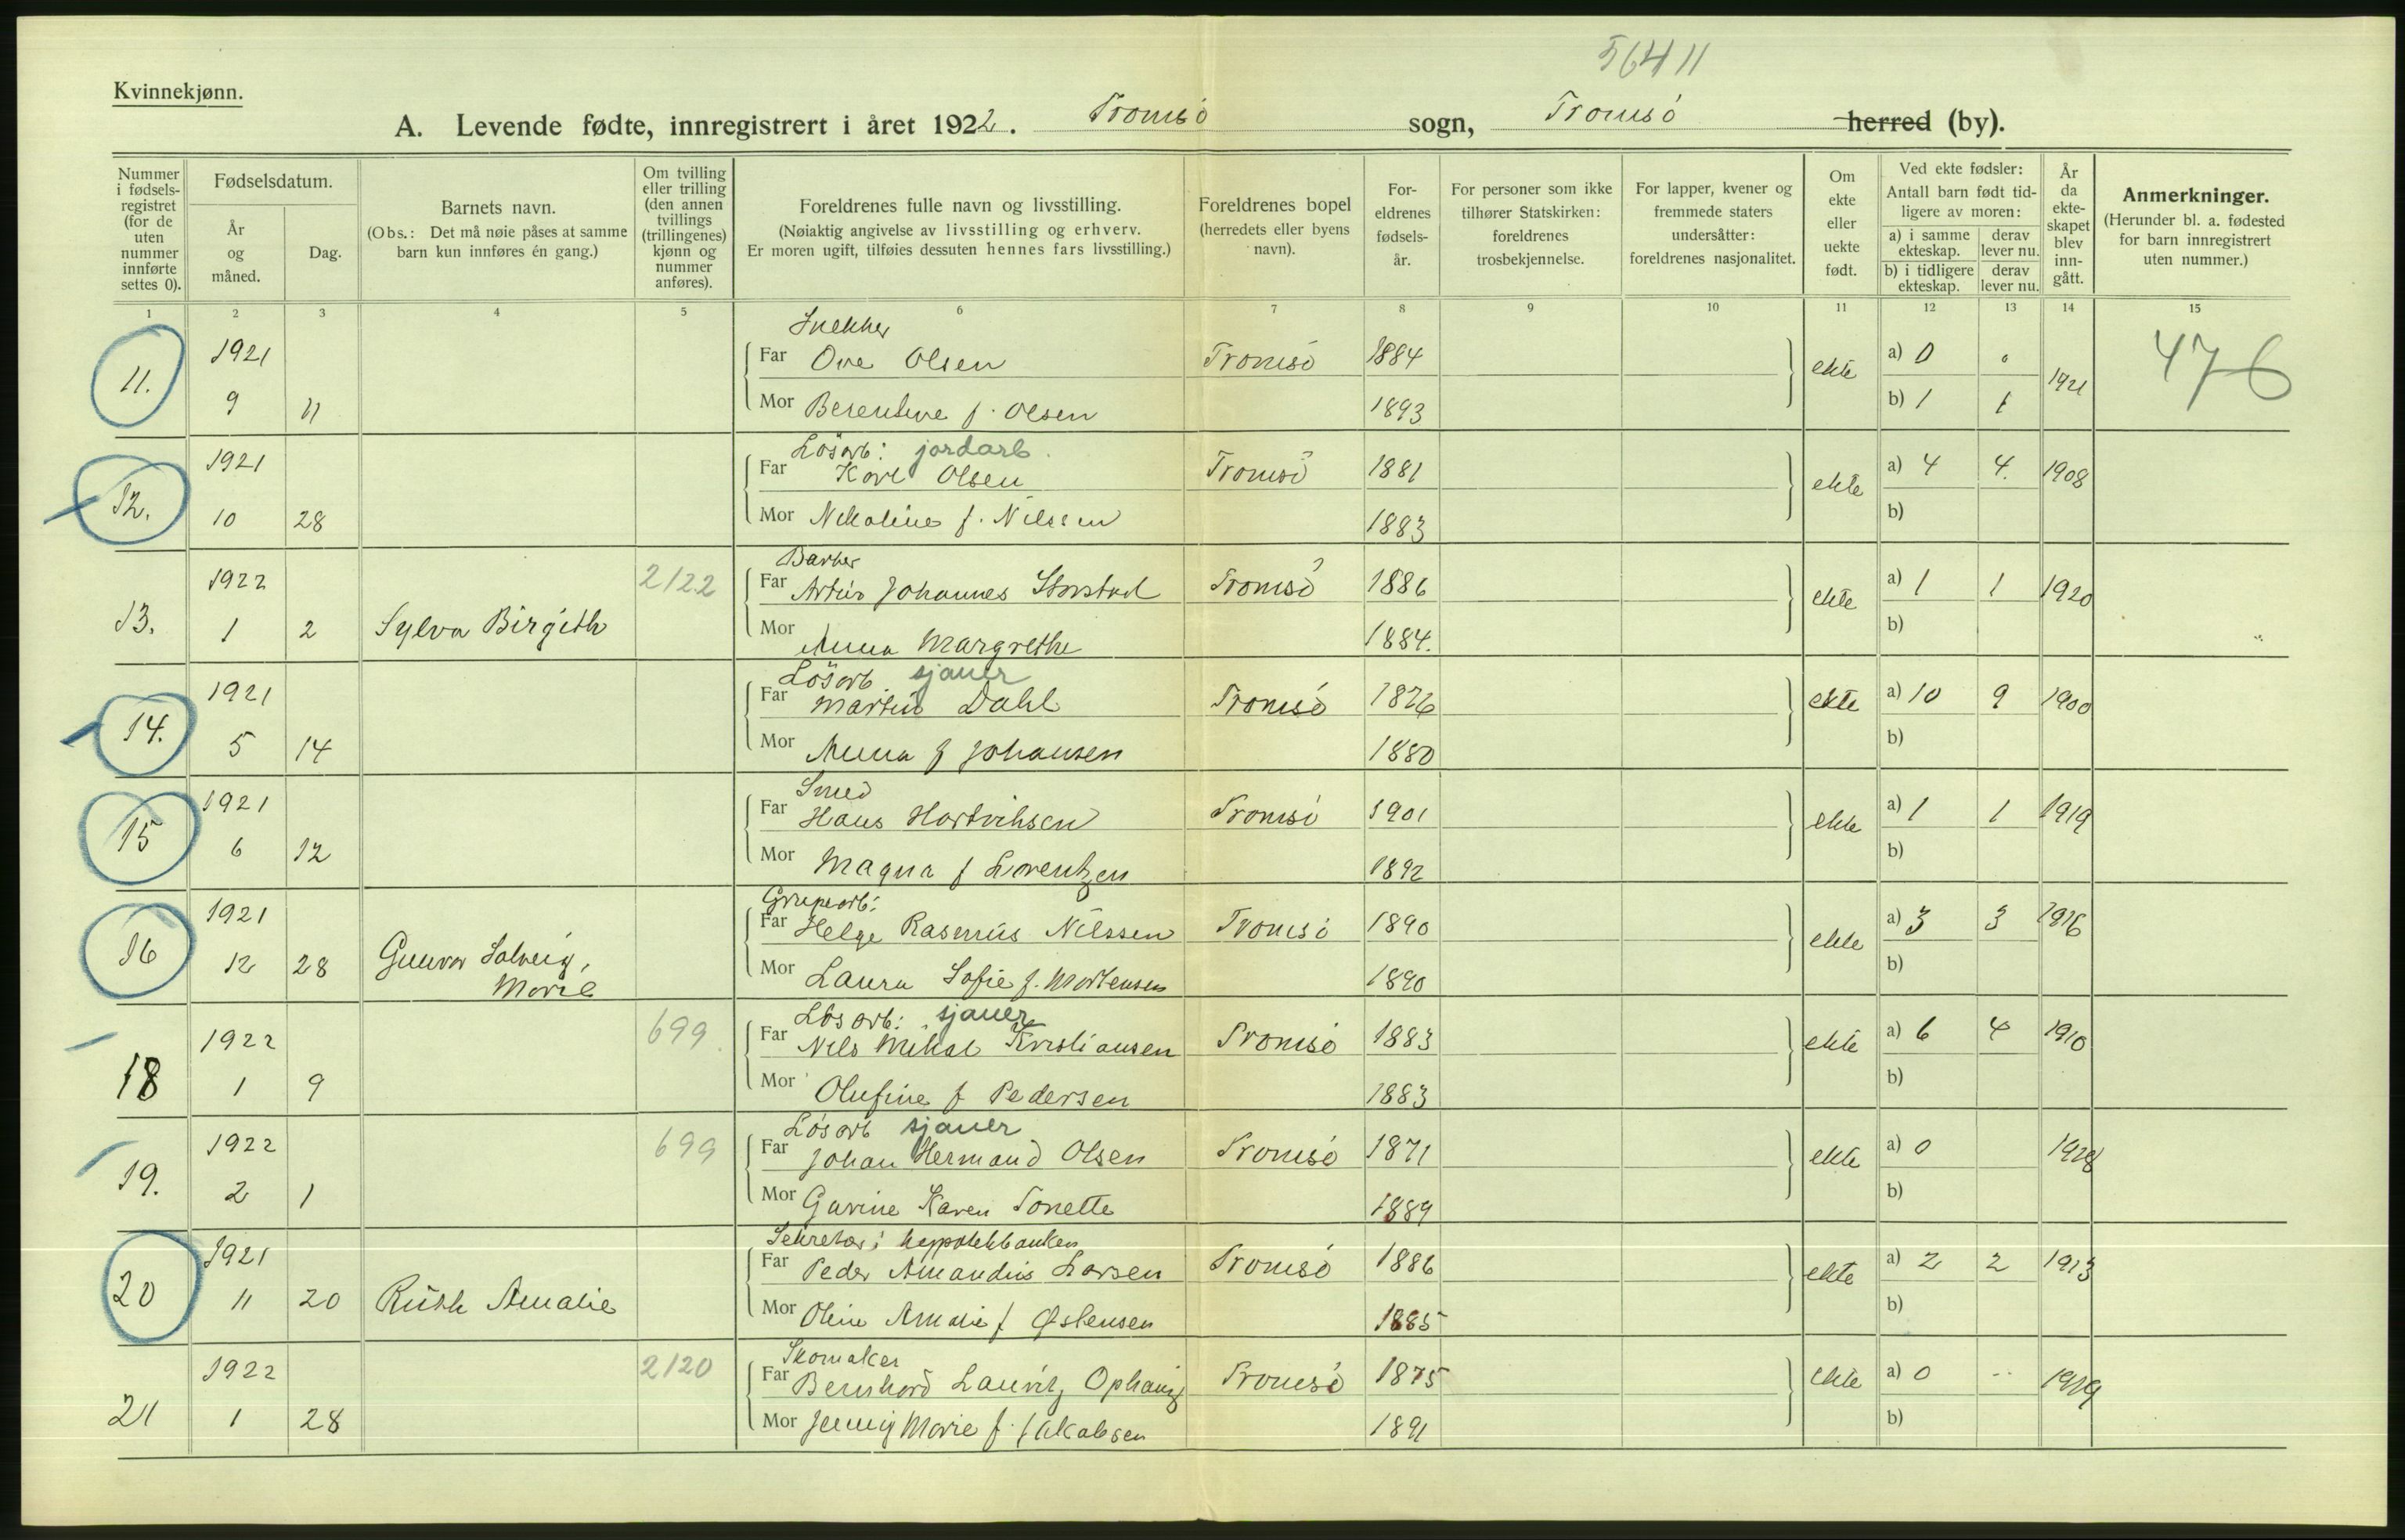 5641 11
Kvinnekjønn.
A. Levende fødte, innregistrert i året 1922. Tromsö sogn, Tromsö herred (by).
Nummer i fødsels-registret (for de uten nummer innførte settes 0).
Fødselsdatum.
År og måned.
Dag.
Barnets navn.
(Obs.: Det må nøie påses at samme barn kun innføres én gang.)
Om tvilling eller trilling (den annen tvillings (trillingenes) kjønn og nummer anføres).
Foreldrenes fulle navn og livsstilling.
(Nøiaktig angivelse av livsstilling og erhverv.
Er moren ugift, tilføies dessuten hennes fars livsstilling.)
Foreldrenes bopel (herredets eller byens navn).
For-eldrenes fødsels-år.
For personer som ikke tilhører Statskirken: foreldrenes trosbekjennelse.
For lapper, kvener og fremmede staters undersåtter: foreldrenes nasjonalitet.
Om ekte eller uekte født.
Ved ekte fødsler:
Antall barn født tid-ligere av moren:
a) i samme ekteskap. derav lever nu.
b) i tidligere ekteskap. derav lever nu.
År da ekte-skapet blev inn-gått.
Anmerkninger.
(Herunder bl. a. fødested for barn innregistrert uten nummer.)
1 2 3 4 5 6 7 8 9 10 11 12 13 14 15
Snekker
11. 1921 Far Ove Olsen Tromsö 1884 ekte a) 0 1921 476
9 11 Mor Berentine f. Olsen 1893 b) 1 1
Lösarb: jordarb.
12. 1921 Far Karl Olsen Tromsö 1881 ekte a) 4 4. 1908
10 28 Mor Nikoline f. Nilssen 1883 b)
Barber
13. 1922 2122 Far Artur Johannes Storstad Tromsö 1886 ekte a) 1 1 1920
1 2 Sylva Birgith Mor Anna Margrethe 1884. b)
Lösarb. sjauer
14. 1921 Far Martin Dahl Tromsö 1876 ekte a) 10 9 1900
5 14 Mor Anna f Johansen 1880 b)
Smed
15 1921 Far Hans Hartviksen Tromsö 1901 ekte a) 1 1 1919
6 12 Mor Magna f Lorentzen 1892 b)
Grupearb:
16 1921 Far Helge Rasmus Nilssen Tromsö 1890 ekte a) 3 3 1916
12 28 Gunvor Solveig, Mor Laura Sofie f. Mortensen 1890 b)
Marie
Lösarb: sjauer
18 1922 699 Far Nils Mikal Kristiansen Tromsö 1883 ekte a) 6 4 1910
1 9 Mor Olufine f Pedersen 1883 b)
Lösarb sjauer
19. 1922 699 Far Johan Hermand Olsen Tromsö 1871 ekte a) 0
2 1 Mor Gurine Karen Tonette 1889 b)
Sekretær i hypotekbanken
20 1921 Far Peder Amandus Larsen Tromsö 1886 ekte a) 2 2 1913
11 20 Ruth Amalie Mor Oline Amalie f Østensen 1885 b)
Skomaker
21 1922 2120 Far Bernhard Lauritz Ophaug Tromsö 1875 ekte a) 0 1919
1 28 Mor Jenny Marie f. Jakobsen 1891 b)